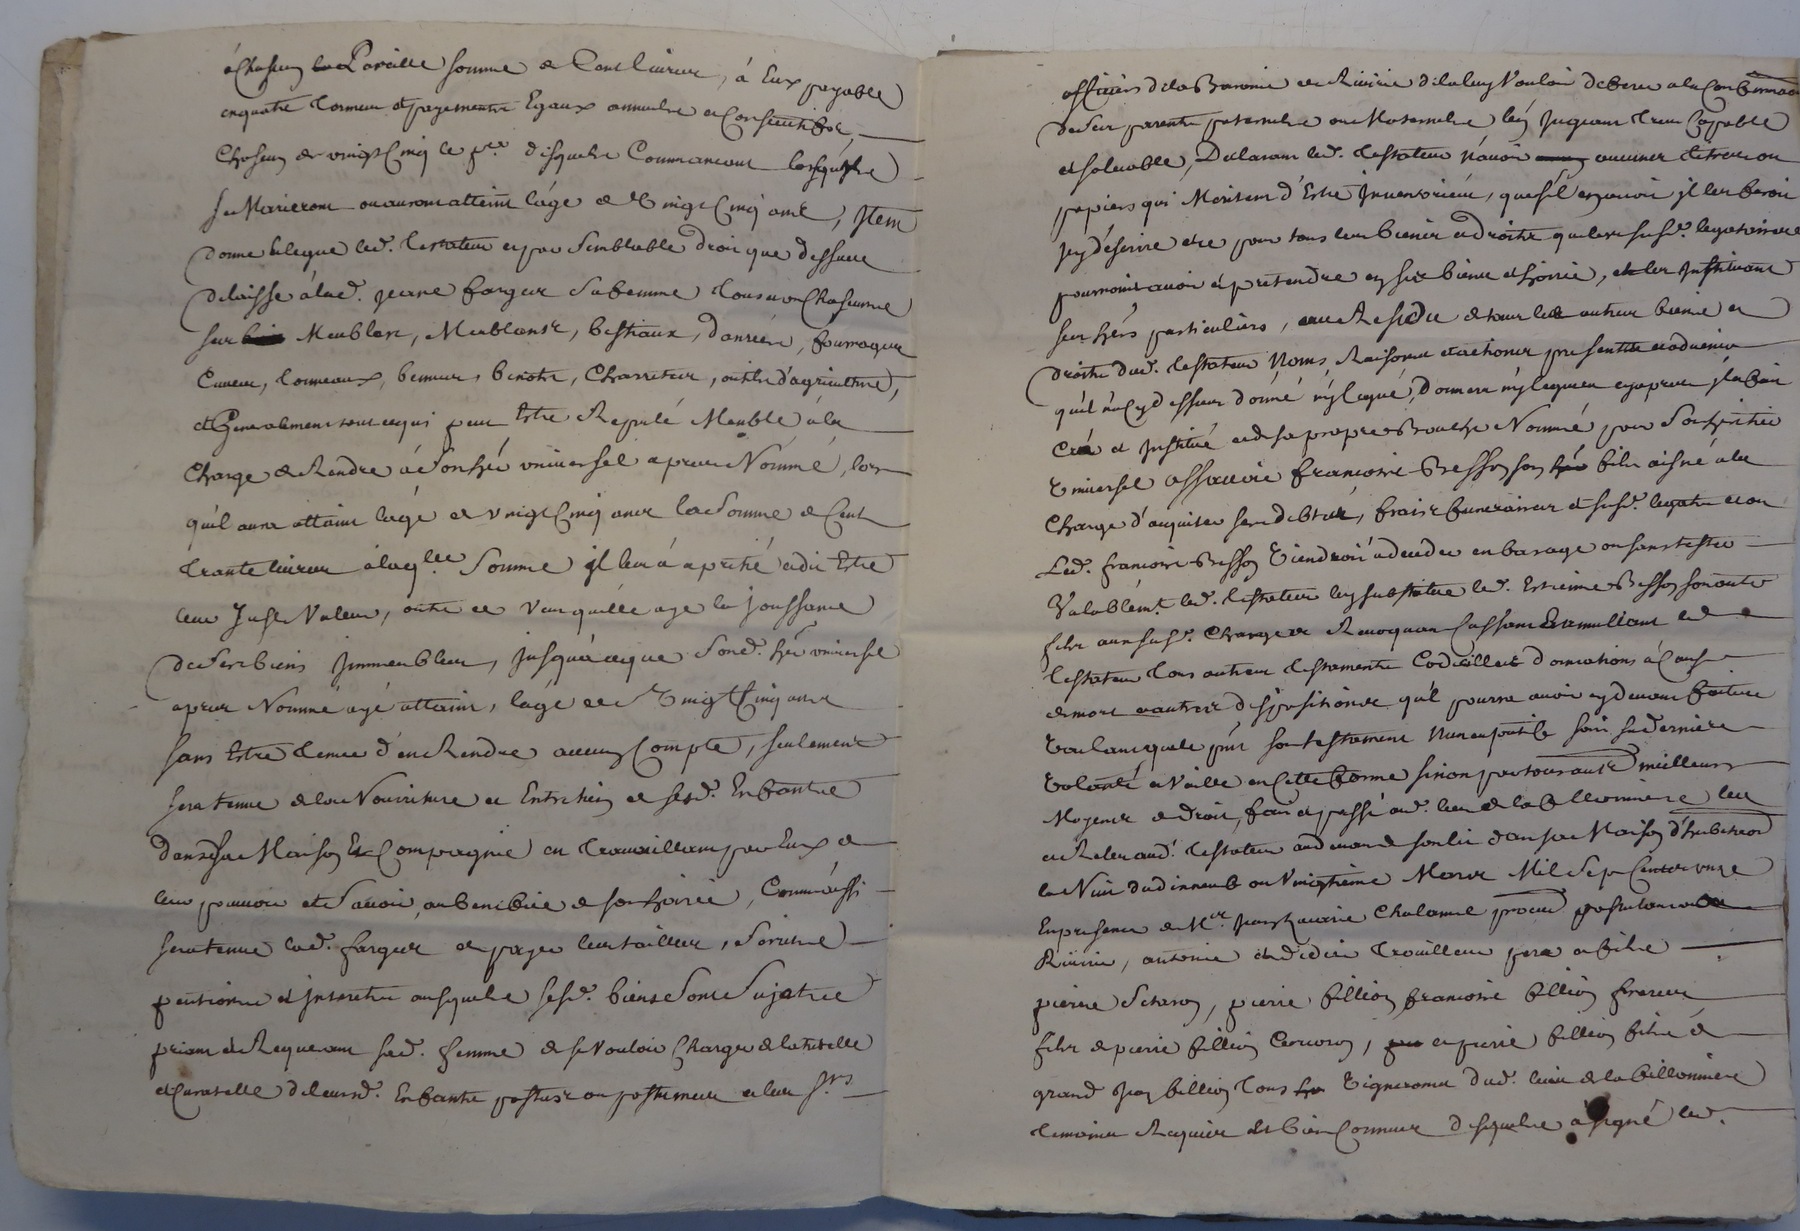 à Chascun la Pareille somme de Cent livres, à Eux payable
en quatre termes et payements Egaux annuels et Consecutifs
Chascun de vingt Cinq le p.er desquels Commancant lorsqu'ils
se Marieront ou auront atteint l'age de Vingt Cinq ans, Item
donne & legue led. testateur et par semblable droit que dessus
delaisse à lad. Jeane fargue sa femme tous et un Chascuns
ses Meubles, Meublants, bestiaux, danrées, fourrages
Cuves, tonneaux, bennes, benots, Charrettes, outils d'agriculture,
et Generalement tout ce qui peut Estre Reputé Meuble à la
Charge de Rendre à son hér universel apres Nommé, lors
qu'il aura attaint l'age de vingt Cinq ans la somme de Cent
trante livres à laq.lle somme il les à aprétié et dit Estre
leur Juste Valeur, outre ce veut qu'elle aye la joussance
de ses biens Immeubles, jusqu'à ce que sond. hér universel
apres Nommé aye attaint, l'age de Vingt Cinq ans
sans Estre tenue d'en Rendre aucun Compte, seulement
sera tenue de la Nourriture et Entretien de sesd. Enfants
dans sa Maison Et Compagnie en travaillant par Eux de
leur pouvoir et savoir, au benefice de son hoirie, Comm'aussi
sera tenue lad. fargue de payer les tailles, servis
pentions et Interets ausquels sesd. biens sont sujets
priant et Requerant sad. femme de se Vouloir Charger de la tutelle
et Curatelle de leursd. Enfants postus ou postumes et les srs
officiers de la Baronie de Riverie de la luy Vouloir deferer à la Confirmation
de ses parents paternels ou Maternels l'en Jugeant tres Capable
et soluable, Declarant led. testateur n'avoir aucuns titres ou
papiers qui Meritent d'Estre Inventoriés, que s'il en avoit il les feroit
Icy d'escrire et ce pour tous les biens et droits que les susd. legataires
pourroint avoir et pretendre en ses biens et hoirie, et les Instituant
ses hérs particuliers, au Residu de tous les autres biens et
droits dud. testateur Noms, Raisons et actions presents et advenir
qu'il n'a Cy dessus donné n'y legué, donnera n'y leguera cy apres il a fait
Créé et Institué et de sa propre Bouche Nommé pour son heritier
Universel assavoir francois Besson son fils aisné à la
Charge d'aquiter ses debtes, frais funeraires et susd. legats et ou
Led. francois Besson Viendroit à deceder en bas age ou sans tester
Valablem.t led. testateur luy substitue led. Estienne Besson son autre
fils aux susd. Charges Revoquant Cassant & annullant led.
testateur tous autres testaments Codicilles donnations à Cause
de mort et autres dispositions qu'il pourra avoir cy devant faites
Voulant que le pnt son testament Nuncupatif soit sa derniere
Volonté et Vaille en Cette forme sinon par tous autres meilleurs
Moyens de droit, fait et passé aud. lieu de la fillonniere leu
et Releu aud. testateur au devant de son lit dans sa Maison d'habitation
la Nuit du dixneuf au Vingtieme Mars Mil Sept Cents onze
En presence de M.e Jean Chalanne procu postulant
Riverie, antoine et Didier trouilleu pere et fils
pierre pierre fillion francois fillion freres
fils de pierre fillion et pierre fillion fils de
grand Jean fillion tous Vignerons dud. lieu de la fillonniere
temoins Requis et bien Connus desquels à signé led.